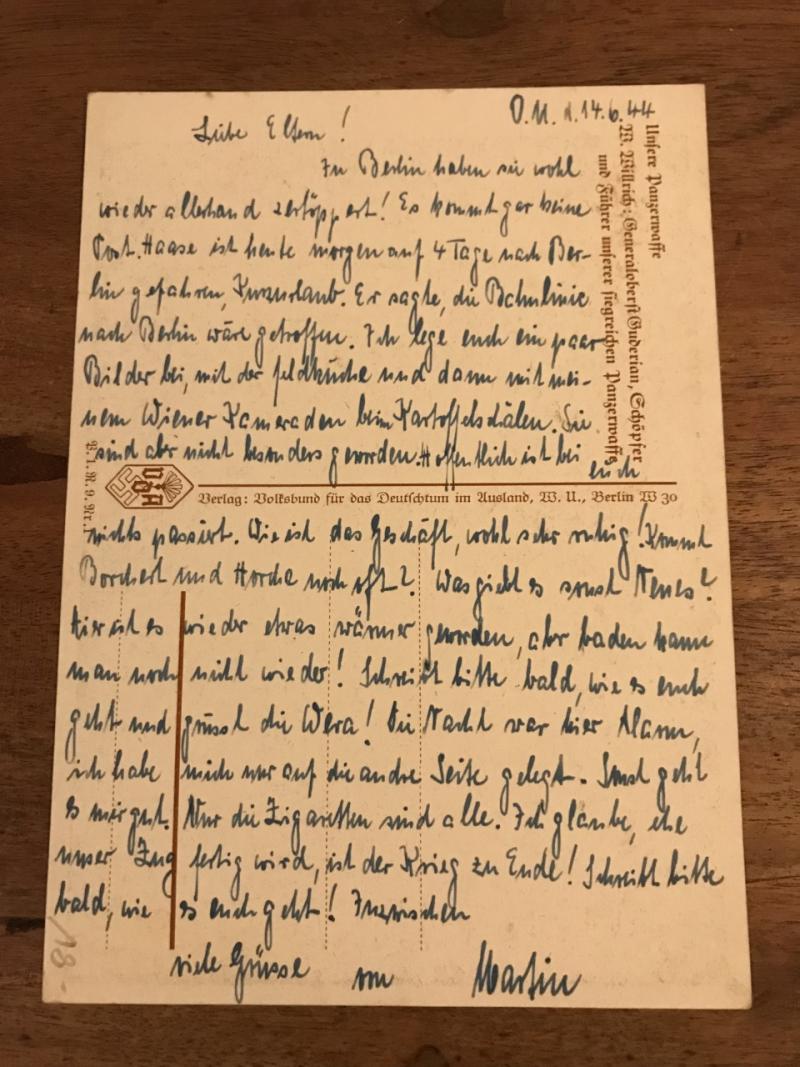 O.U. d. 14.6.44
Liebe Eltern!
In Berlin haben sie wohl
wieder allerhand zertöppert! Es kommt gar keine
Post. Haase ist heute morgen auf 4 Tage nach Ber-
lin gefahren, Kurzurlaub. Er sagte, die Bahnlinie
nach Berlin wäre getroffen. Ich lege euch ein paar
Bilder bei, mit der Feldküche und dann mit mei-
nem Wiener Kameraden beim Kartoffelschälen. Sie
sind abr nicht besonders geworden. Hoffentlich ist bei
euch
nichts passiert. Wie ist das Geschäft, wohl sehr ruhig! Kommt
Borchert und Horche noch oft? Was giebt es sonst Neues?
Hier ist es wieder etwas wärmer geworden, abr baden kann
man noch nicht wieder! Schreibt bitte bald, wie es euch
geht und grüsst die Wera! Die Nacht war hier Alarm,
ich habe mich nur auf die andre Seite gelegt. Sonst geht
es mir gut. Nur die Zigaretten sind alle. Ich glaube, ehe
unser Zug fertig wird, ist der Krieg zu Ende! Schreibt bitte
bald, wie es euch geht! Inzwischen
viele Grüsse von Martin
Unsere Panzerwaffe
W. Willrich: Generaloberst Guderian, Schöpfer
und Führer unserer siegreichen Panzerwaffe
VDA
Verlag: Volksbund für das Deutschtum im Ausland, W. U., Berlin W 30
18-